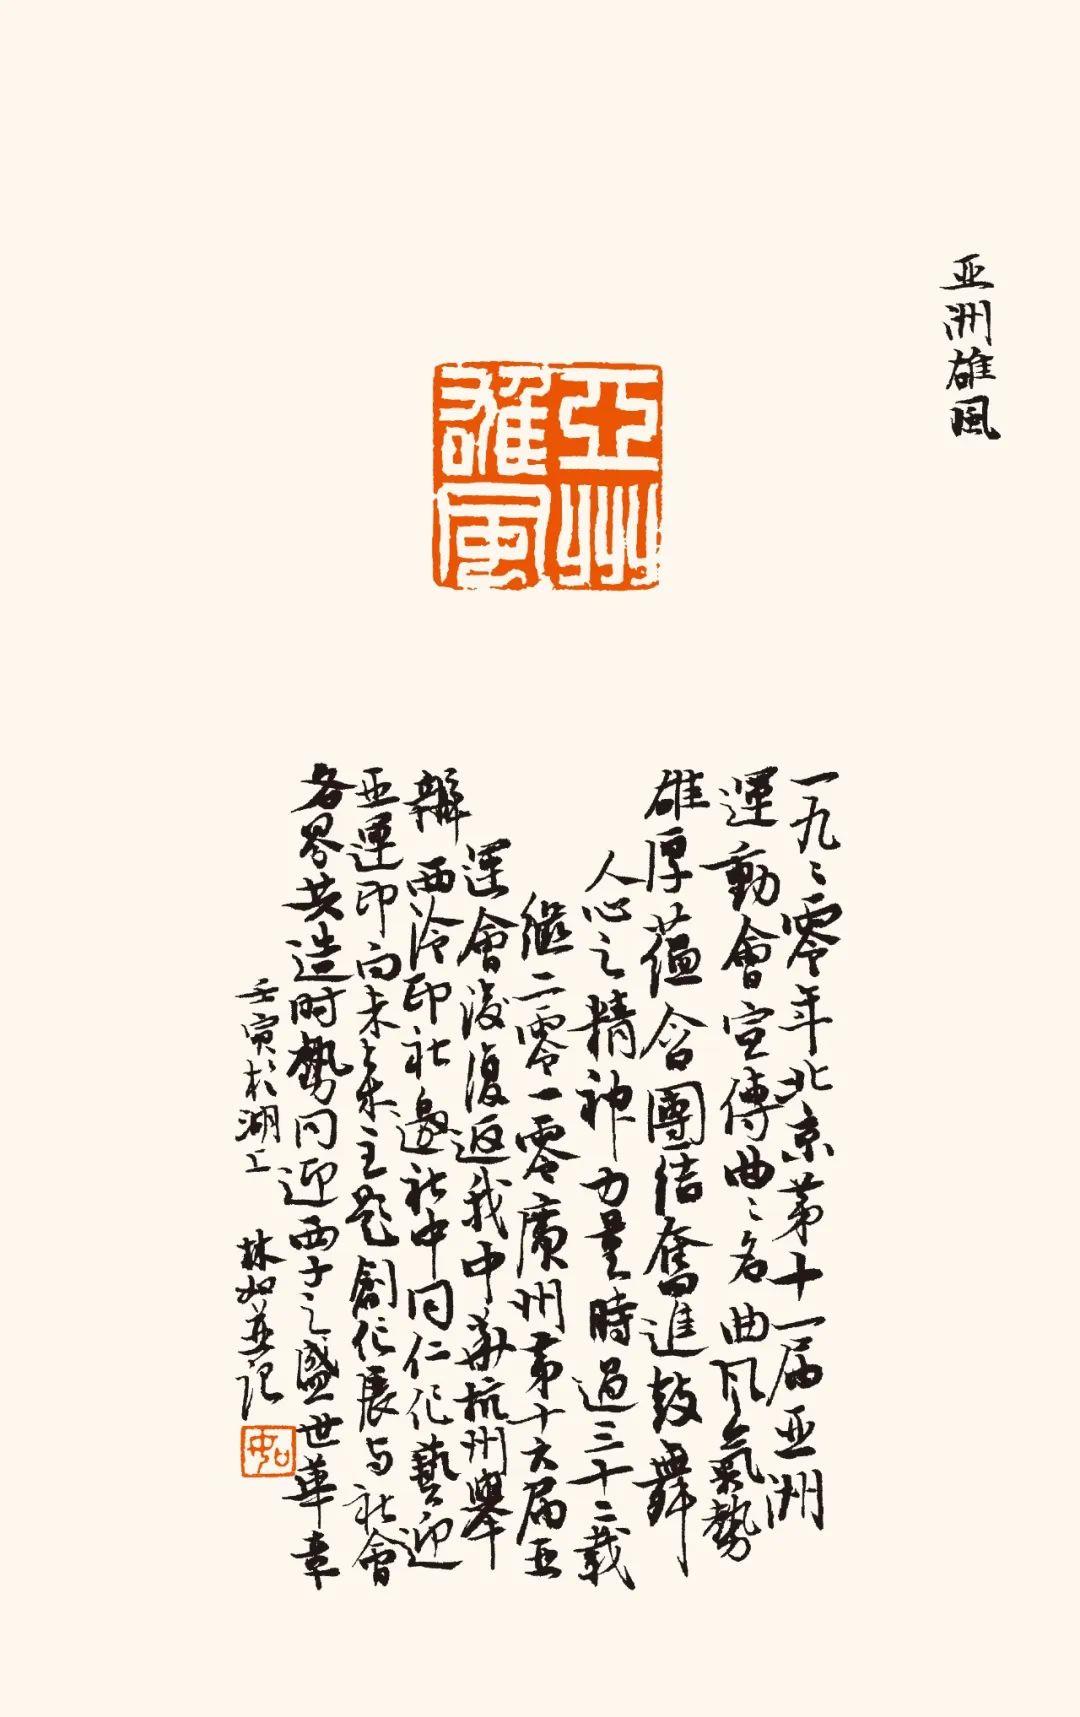 亚洲雄風
亞州
雄風
一九〻零年北京第十一届亚洲
運動會宣傳曲〻名曲风氣勢
雄厚蘊含團结奮進鼓舞
人心之精神力量時過三十二载
繼二零一零廣州第十六届亚
運會後復返我中華杭州舉
辦西泠印社邀社中同仁作藝迎
亚運印向未来主题創作展与社會
各界共造时勢同迎西子之盛世華章
壬寅於湖上 林如并记
如